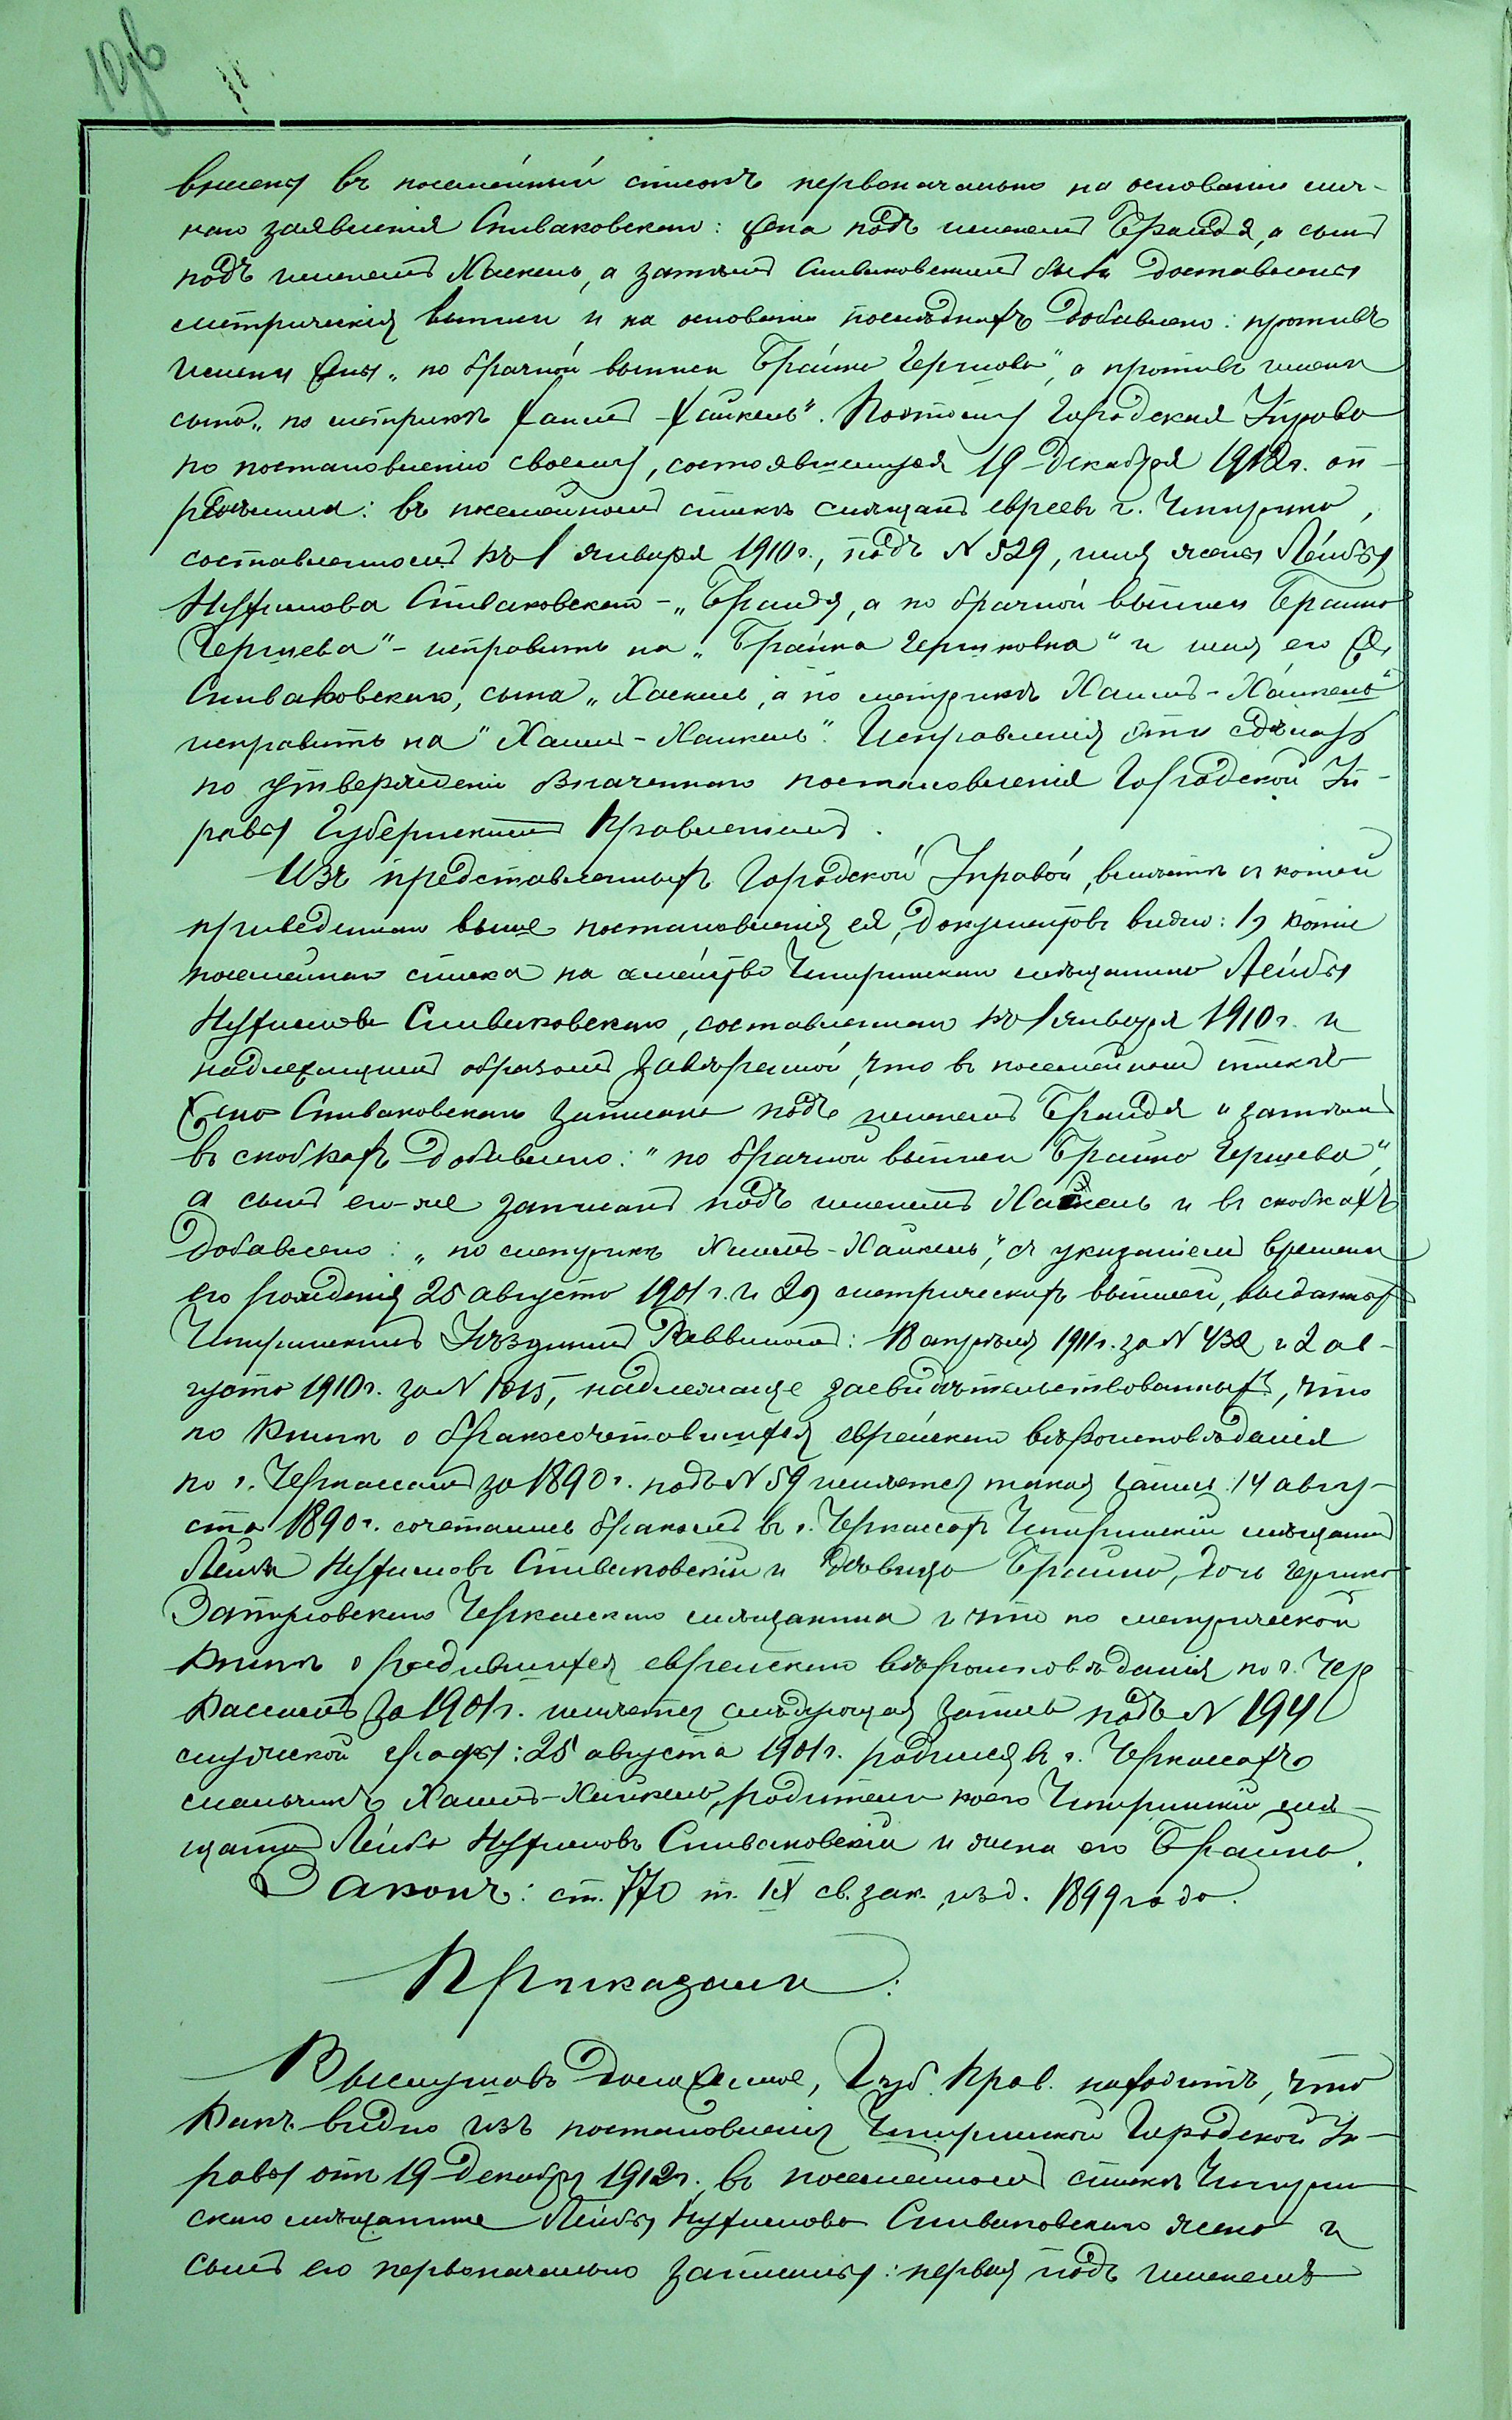 196
внесены въ посемейный списокъ первоначально на основаніи лич-
наго заявленія Спиваковскаго: жена подъ именемъ Брандя, а сынъ
подъ именемъ Хаскель, а затѣмъ Спиваковскимъ были доставлены
метрическія выписи и на основаніи послѣднихъ добавлено: противъ
имени жены „по брачной выписи Брайна Гершова", а противъ имени
сына „по метрикѣ Хаимъ-Хайкель". Поэтому Городская Управа
по постановленію своему, состоявшемуся 19 декабря 1912 г. оп-
редѣлила: въ посемейномъ спискѣ мѣщанъ евреевъ г. Чигирина,
составленномъ къ 1 января 1910 г., подъ N 529, имя жены Лейбы
Нухимова Спиваковскаго - „Брандя, а по брачной выписи Брайна
Гершева" - исправить на „Брайна Гершковна" и имя его же,
Спиваковскаго, сына „Хаскель, а по метрикѣ Хаимъ-Хайкель"
исправить на "Хаимъ-Хайкель". Исправленія эти сдѣлать
по утвержденіи означеннаго постановленія Городской Уп-
равы Губернскимъ Правленіемъ.
Изъ представленныхъ Городской Управой, вмѣстѣ съ копіей
приведеннаго выше постановленія ея, документовъ видно: 1) копіи
посемейнаго списка на семейство Чигиринскаго мѣщанина Лейбы
Нухимова Спиваковскаго, составленнаго къ 1 января 1910 г. и
надлежащимъ образомъ завѣренной, что въ посемейномъ спискѣ
жена Спиваковскаго записана подъ именемъ Брандя и затѣмъ
въ скобкахъ добавлено: "по брачной выписи Брайна Гершева",
а сынъ его-же записанъ подъ именемъ Хаскель и въ скобкахъ
добавлено: „по метрикѣ Хаимъ-Хайкель", съ указаніемъ времени
его рожденія 25 августа 1901 г. и 2) метрическихъ выписей, выданныхъ
Чигиринскимъ Уѣзднымъ Раввиномъ: 18 апрѣля 1911 г. за N 432 и 2 ав-
густа 1910 г. за N 1015, надлежаще засвидѣтельствованныхъ, что
по книгѣ о бракосочетавшихся еврейскаго вѣроисповѣданія
по г. Черкассамъ за 1890 г. подъ N 59 имѣется такая запись: 14 авгу-
ста 1890 г. сочетались бракомъ въ г. Черкассахъ Чигиринскій мѣщанинъ
Лейба Нухимовъ Спиваковскій и дѣвица Брайна, дочь Гершка
Черкасскаго мѣщанина и что по метрической
книгѣ о родившихся еврейскаго вѣроисповѣданія по г. Чер-
кассамъ за 1901 г. имѣется слѣдующая запись подъ N 194
мужской графы: 25 августа 1901 г. родился въ г. Черкассахъ
мальчикъ Хаимъ-Хайкель, родители коего Чигиринскій мѣ-
щанинъ Лейба Нухимовъ Спиваковскій и жена его Брайна.
Законъ: ст. 770 т. IX св. зак., изд. 1899 года.
Приказали:
Выслушавъ доложенное, Губ. Прав. находитъ, что
какъ видно изъ постановленія Чигиринской Городской Уп-
равы отъ 19 декабря 1912 г., въ посемейномъ спискѣ Чигирин-
скаго мѣщанина Лейбы Нухимова Спиваковскаго жена и
сынъ его первоначально записаны: первая подъ именемъ